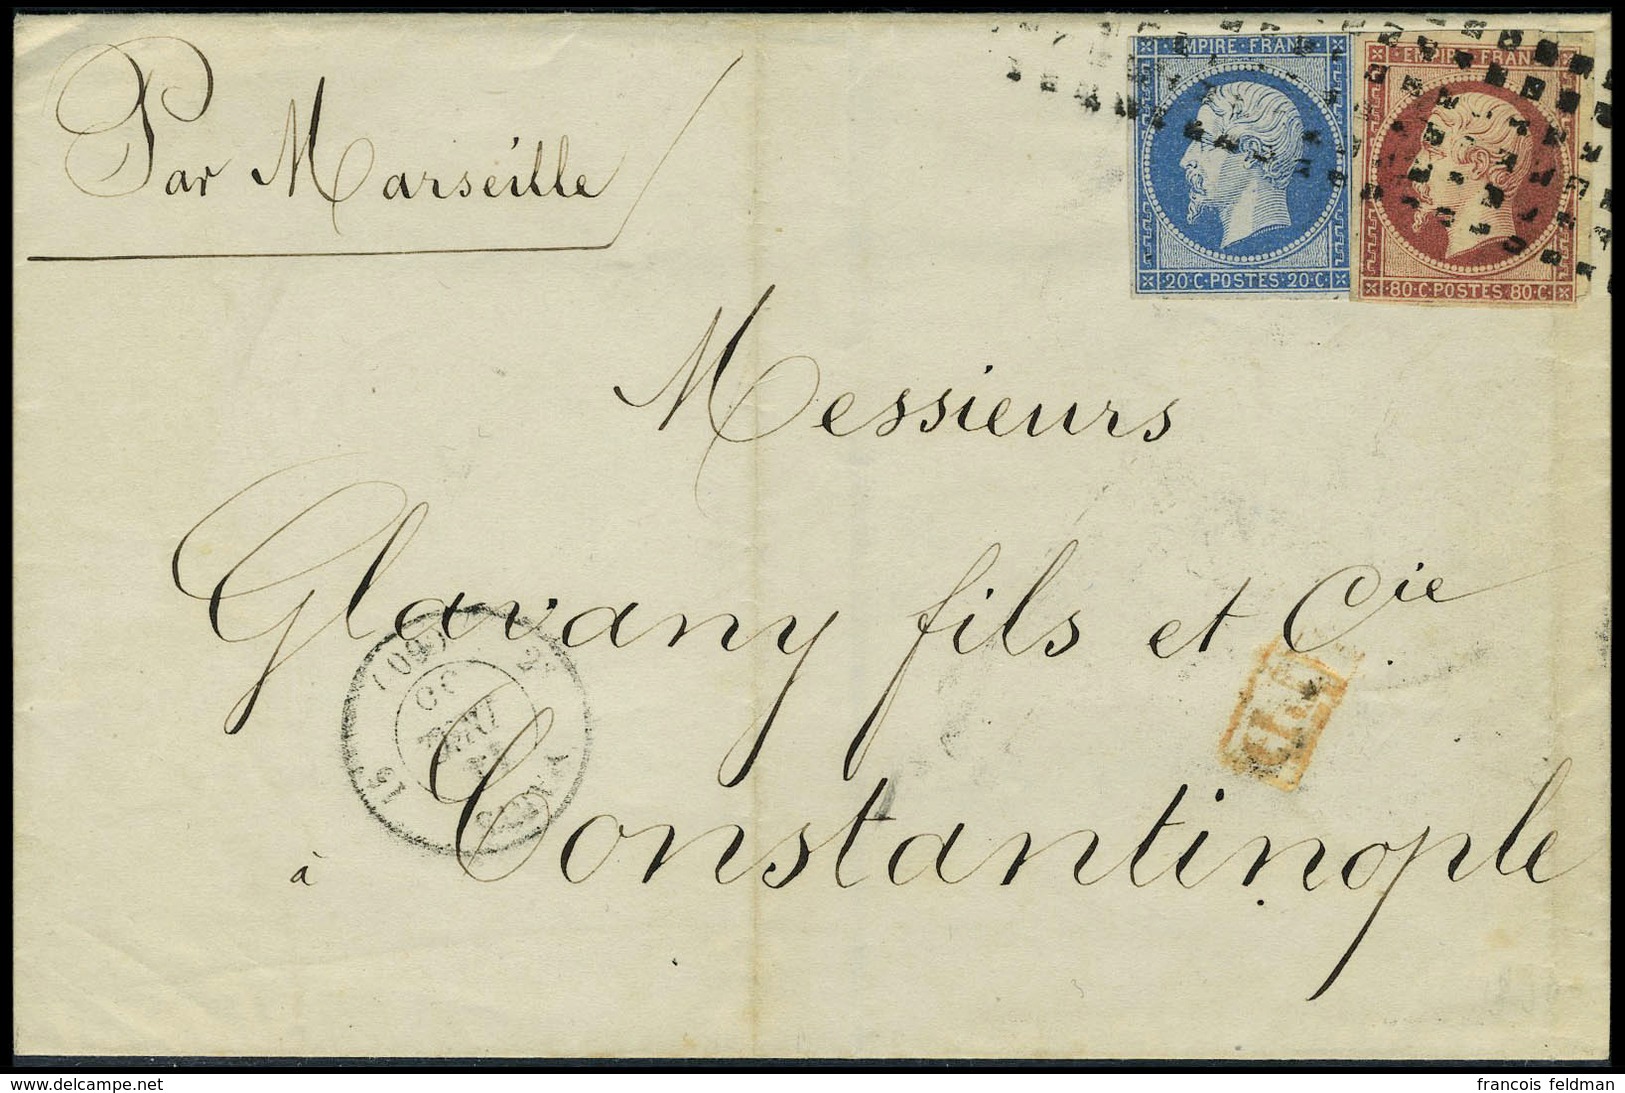 Par Marseille
EMPIRE · FRANC
20 · C · POSTES · 20 · C ·
EMPIRE · FRANC
80 · C · POSTES · 80 · C ·
Messieurs
Glavany fils et Cie
(60)
15
P.P.
à Constantinople
www.delcampe.net
francois feldman